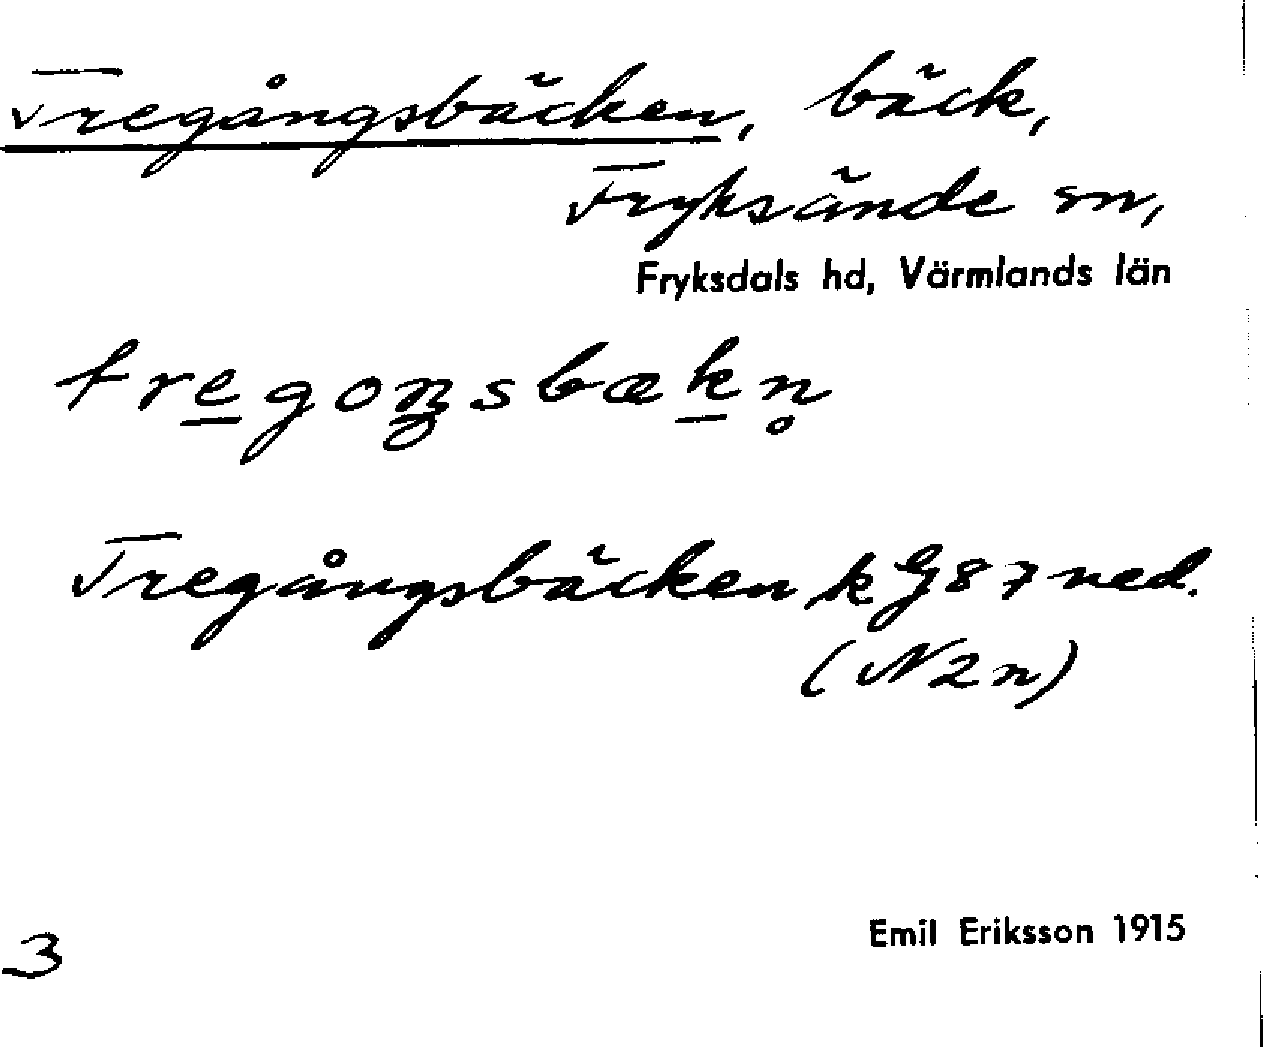 Tregångsbäcken, bäck,
Fryksände sn,
Fryksdals hd, Värmlands län
tre̲goŋsbæk̲n̥
Tregångsbäcken k G 87 ned.
(N 2 n)
Emil Eriksson 1915
3